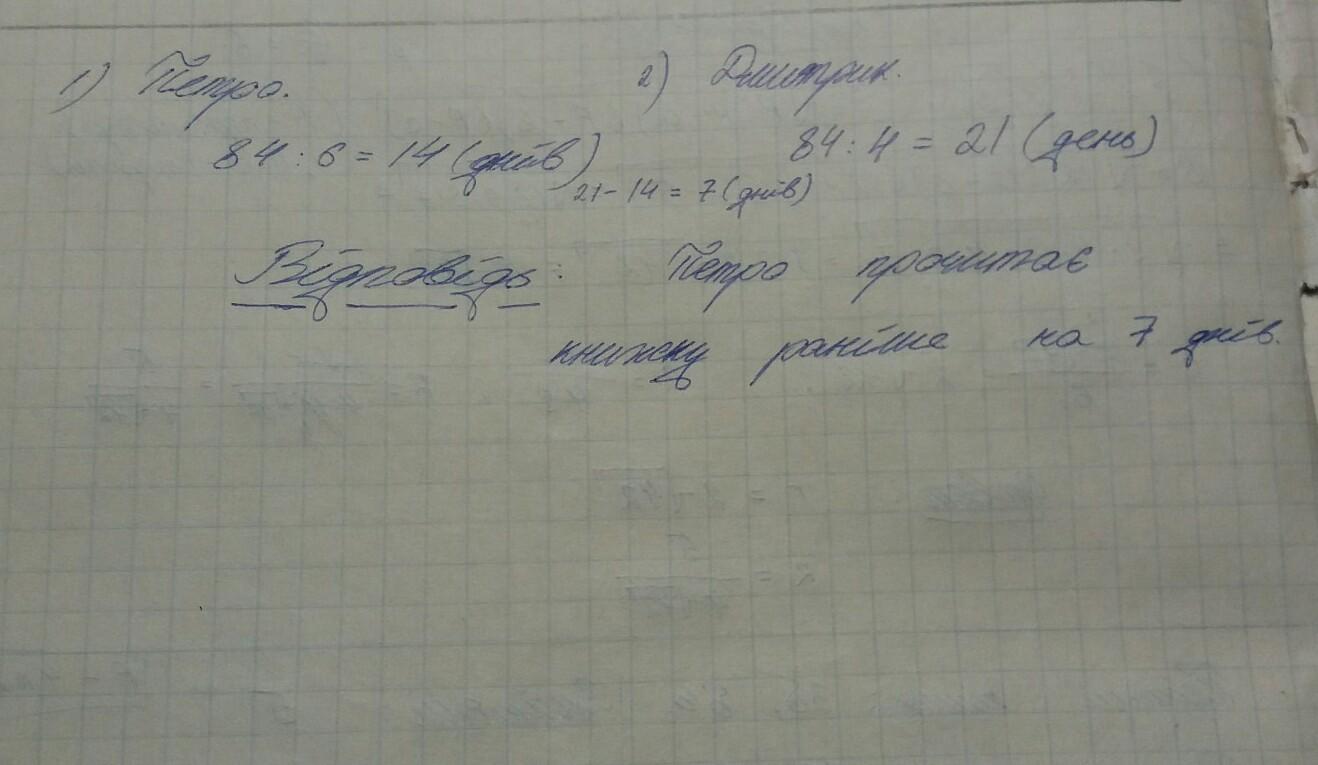 1) Петро.
2) Дмитрик.
84 : 6 = 14 (днів)
84 : 4 = 21 (день)
21 - 14 = 7 (днів)
Відповідь: Петро прочитає
книжку раніше на 7 днів.